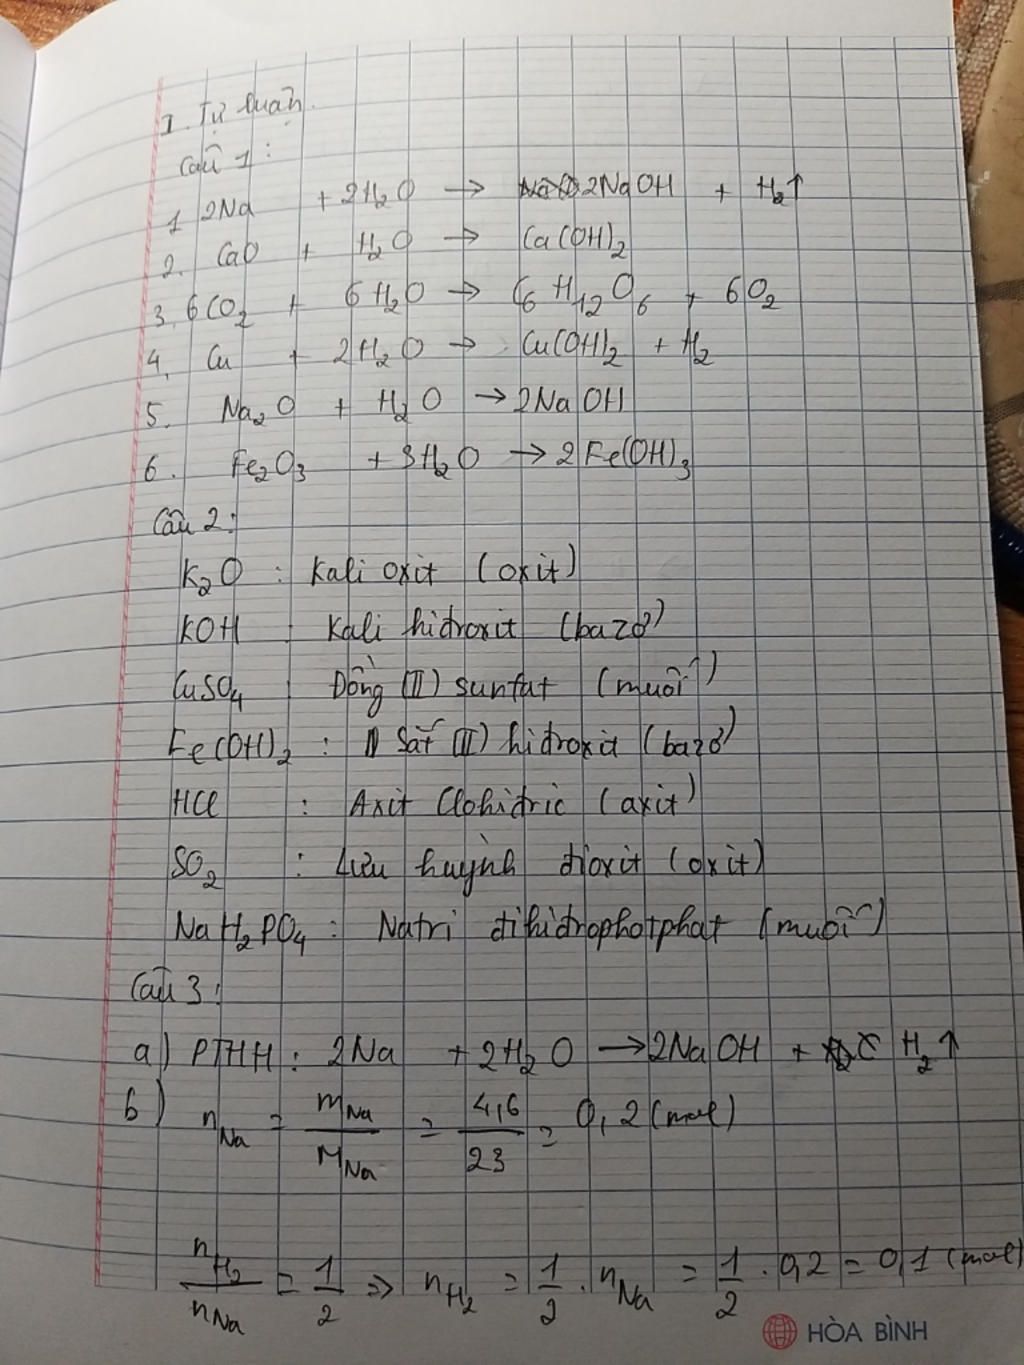 I. Tự luận.
Câu 1:
1. 2Na + 2H₂O → 2NaOH + H₂↑
2. CaO + H₂O → Ca(OH)₂
3. 6CO₂ + 6H₂O → C₆H₁₂O₆ + 6O₂
4. Cu + 2H₂O → Cu(OH)₂ + H₂
5. Na₂O + H₂O → 2NaOH
6. Fe₂O₃ + 3H₂O → 2Fe(OH)₃
Câu 2:
K₂O : Kali oxit (oxit)
KOH : Kali hiđroxit (bazơ)
CuSO₄ : Đồng (II) sunfat (muối)
Fe(OH)₂ : Sắt (II) hiđroxit (bazơ)
HCl : Axit Clohiđric (axit)
SO₂ : Lưu huỳnh đioxit (oxit)
NaH₂PO₄ : Natri đihiđrophotphat (muối)
Câu 3:
a) PTHH: 2Na + 2H₂O → 2NaOH + H₂↑
b) nNa = mNa / MNa = 4,6 / 23 = 0,2 (mol)
nH₂ / nNa = 1/2 => nH₂ = 1/2 . nNa = 1/2 . 0,2 = 0,1 (mol)
HÒA BÌNH